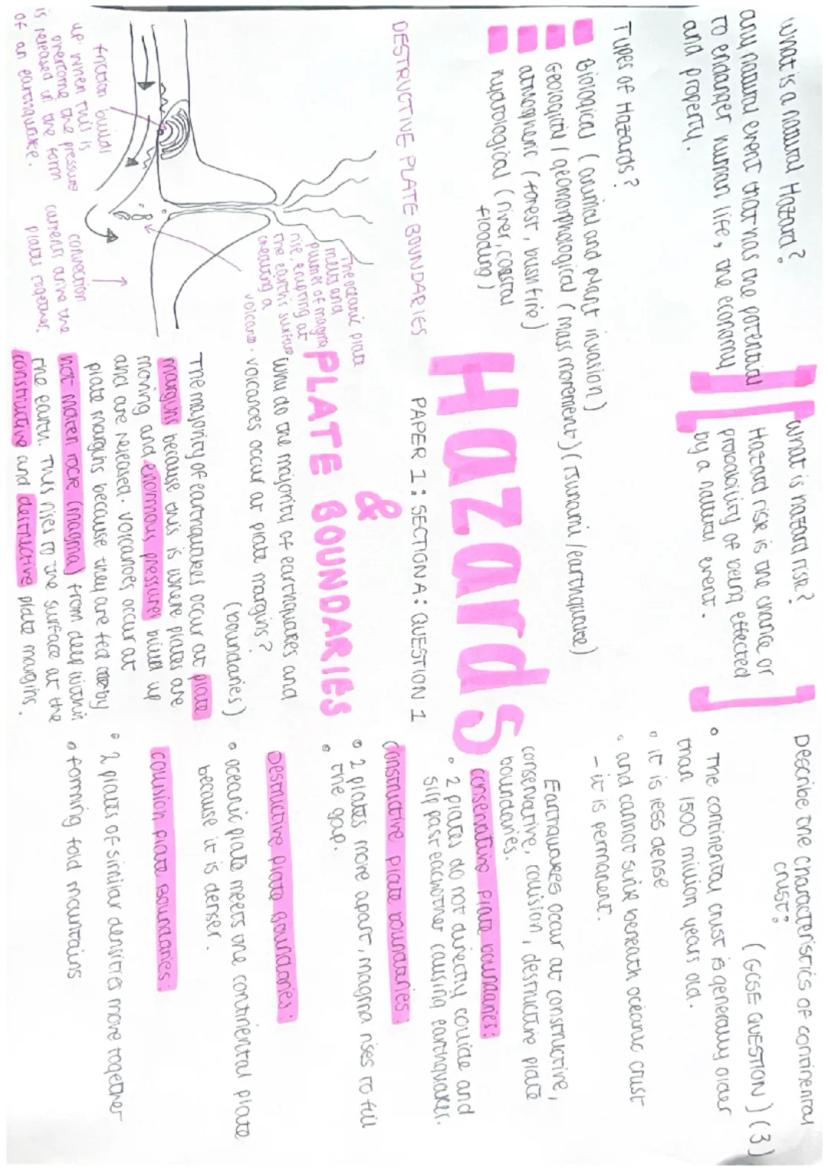 what is a natural Hazard?
any natural event that has the potential
to endanger human life, the economy
and property.
what is hazard rise?
Hazard rise is the chance or
probability of being effected
by a natural event.
Describe the characteristics of continental
crust?
(GCSE QUESTION) (3)
• The continental crust is generally older
than 1500 million years old.
• it is less dense
• and cannot sink beneath oceanic crust
- it is permanent.
Types of Hazards?
Biological (animal and plant invasion)
Geological / geomorphological (mass movement) (Tsunami / earthquake)
atmospheric (forest, bushfire)
hydrological (river, coastal
flooding)
Hazards
PAPER 1: SECTION A: QUESTION 1
&
PLATE BOUNDARIES
Earthquakes occur at constructive,
conservative, collision, destructive plate
boundaries.
conservative plate boundaries:
• 2 plates do not directly collide and
slip past eachother causing earthquakes.
constructive plate boundaries:
• 2 plates move apart, magma rises to fill
• the gap.
Destructive plate Boundaries:
• oceanic plate meets the continental plate
because it is denser.
collision plate Boundaries:
• 2 plates of similar densities move together
• forming fold mountains
DESTRUCTIVE PLATE BOUNDARIES
The oceanic plate
melts and
plumes of magma
rise, erupting at
the earth's surface
creating a
volcano.
friction builds
up. When this is
overcome the pressure
is released in the form
of an earthquake.
convection
currents drive the
plates together.
Why do the majority of earthquakes and
volcanoes occur at plate margins?
(boundaries)
The majority of earthquakes occur at plate
margins because this is where plates are
moving and enormous pressures build up
and are released. volcanoes occur at
plate margins because they are fed by
hot molten rock (magma) from deep within
the earth. This rises to the surface at the
constructive and destructive plate margins.